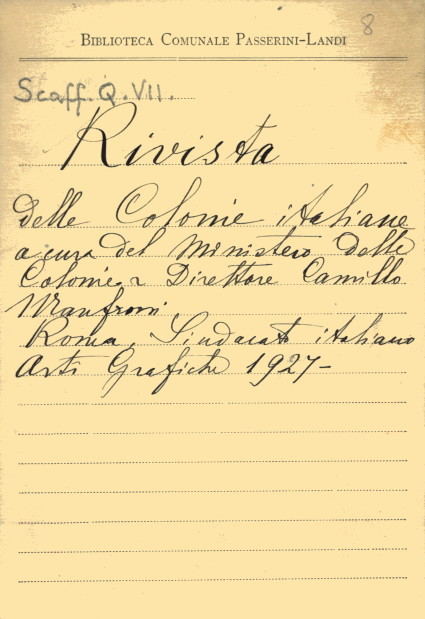 8
BIBLIOTECA COMUNALE PASSERINI-LANDI
Scaff. Q. VII.
Rivista
delle Colonie italiane
a cura del Ministero delle
Colonie - Direttore Camillo
Manfroni.
Roma, Sindacato italiano
Arti Grafiche 1927-